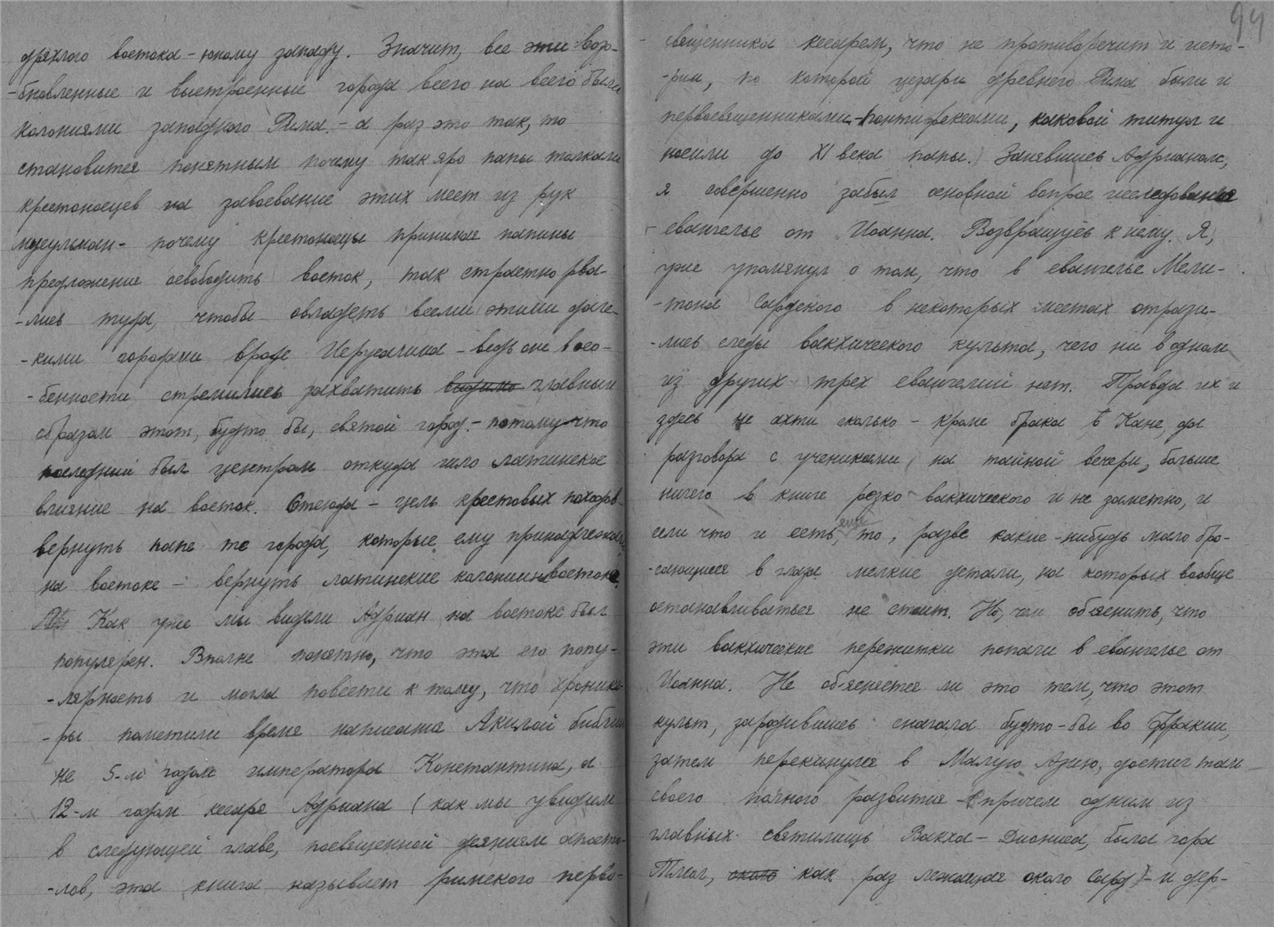 дряхлого востока – юному западу. Значит, все эти воз-
-бновленные и выстроенные города всего на всего были
колониями западного Рима. – а раз это так, то
становится понятным почему так яро папы толкали
крестоносцев на завоевание этих мест из рук
мусульман – почему крестоносцы принимая папины
предложение освободить восток, так страстно рва-
-лись туда, чтобы овладеть всеми этими дале-
-кими городами вроде Иерусалима – ведь они в осо-
-бенности стремились захватить главным
образом этот, будто бы, святой город. – потому что
последний был центром откуда шло латинское
влияние на восток. Отсюда – цель крестовых походов
вернуть папе те города, которые ему принадлежали
на востоке – вернуть латинские колонии на востоке.
Как уже мы видели Адриан на востоке был
популярен. Вполне понятно, что эта его попу-
-лярность и могла повести к тому, что хроника-
-ры пометили время написания Акилой библии
не 5-м годом императора Константина, а
12-м годом кесаря Адриана (как мы увидим
в следующей главе, посвященной деяниям апосто-
-лов, эта книга называет римского перво-
94
священника кесарем, что не противоречит и исто-
-рии, по которой цезари древнего Рима были и
первосвященниками-понтифексами, каковой титул и
носили до XI века папы.) Занявшись Адрианом,
я совершенно забыл основной вопрос исследования
евангелье от Иоанна. Возвращусь к нему. Я,
уже упомянул о том, что в евангелье Мели-
-тона Сардского в некоторых местах отрази-
-лись следы вакхического культа, чего ни в одном
из других трех евангелий нет. Правда их и
здесь не ахти сколько – кроме брака в Кане, да
разговора с учениками на тайной вечери, больше
ничего в книге резко вакхического и не заметно, и
если что и есть еще, то, разве какие-нибудь мало бро-
-сающиеся в глаза мелкие детали, на которых вообще
останавливаться не стоит. Но, чем объяснить, что
эти вакхические пережитки попали в евангелье от
Иоанна. Не объясняется ли это тем, что этот
культ, зародившись сначала будто-бы во Фракии,
затем перекинулся в Малую Азию, достиг там
своего полного развития – (причем одним из
главных святилищ Вакха – Диониса, была гора
Тмол, как раз лежащая около Сард) – и дер-